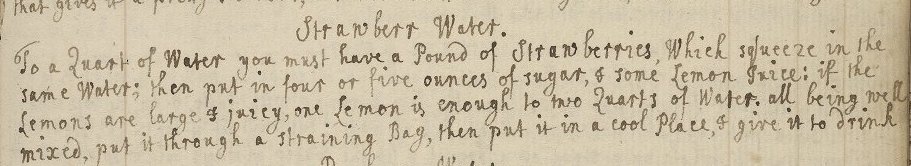 that gives it a
Strawberr Water.
To a Quart of Water you must have a Pound of Strawberries, Which squeeze in the
same Water; then put in four or five ounces of sugar, & some Lemon Juice: if the
Lemons are large & juicy, one Lemon is enough to two Quarts of Water. all being well
mixed, put it through a straining Bag, then put it in a cool Place, & give it to drink